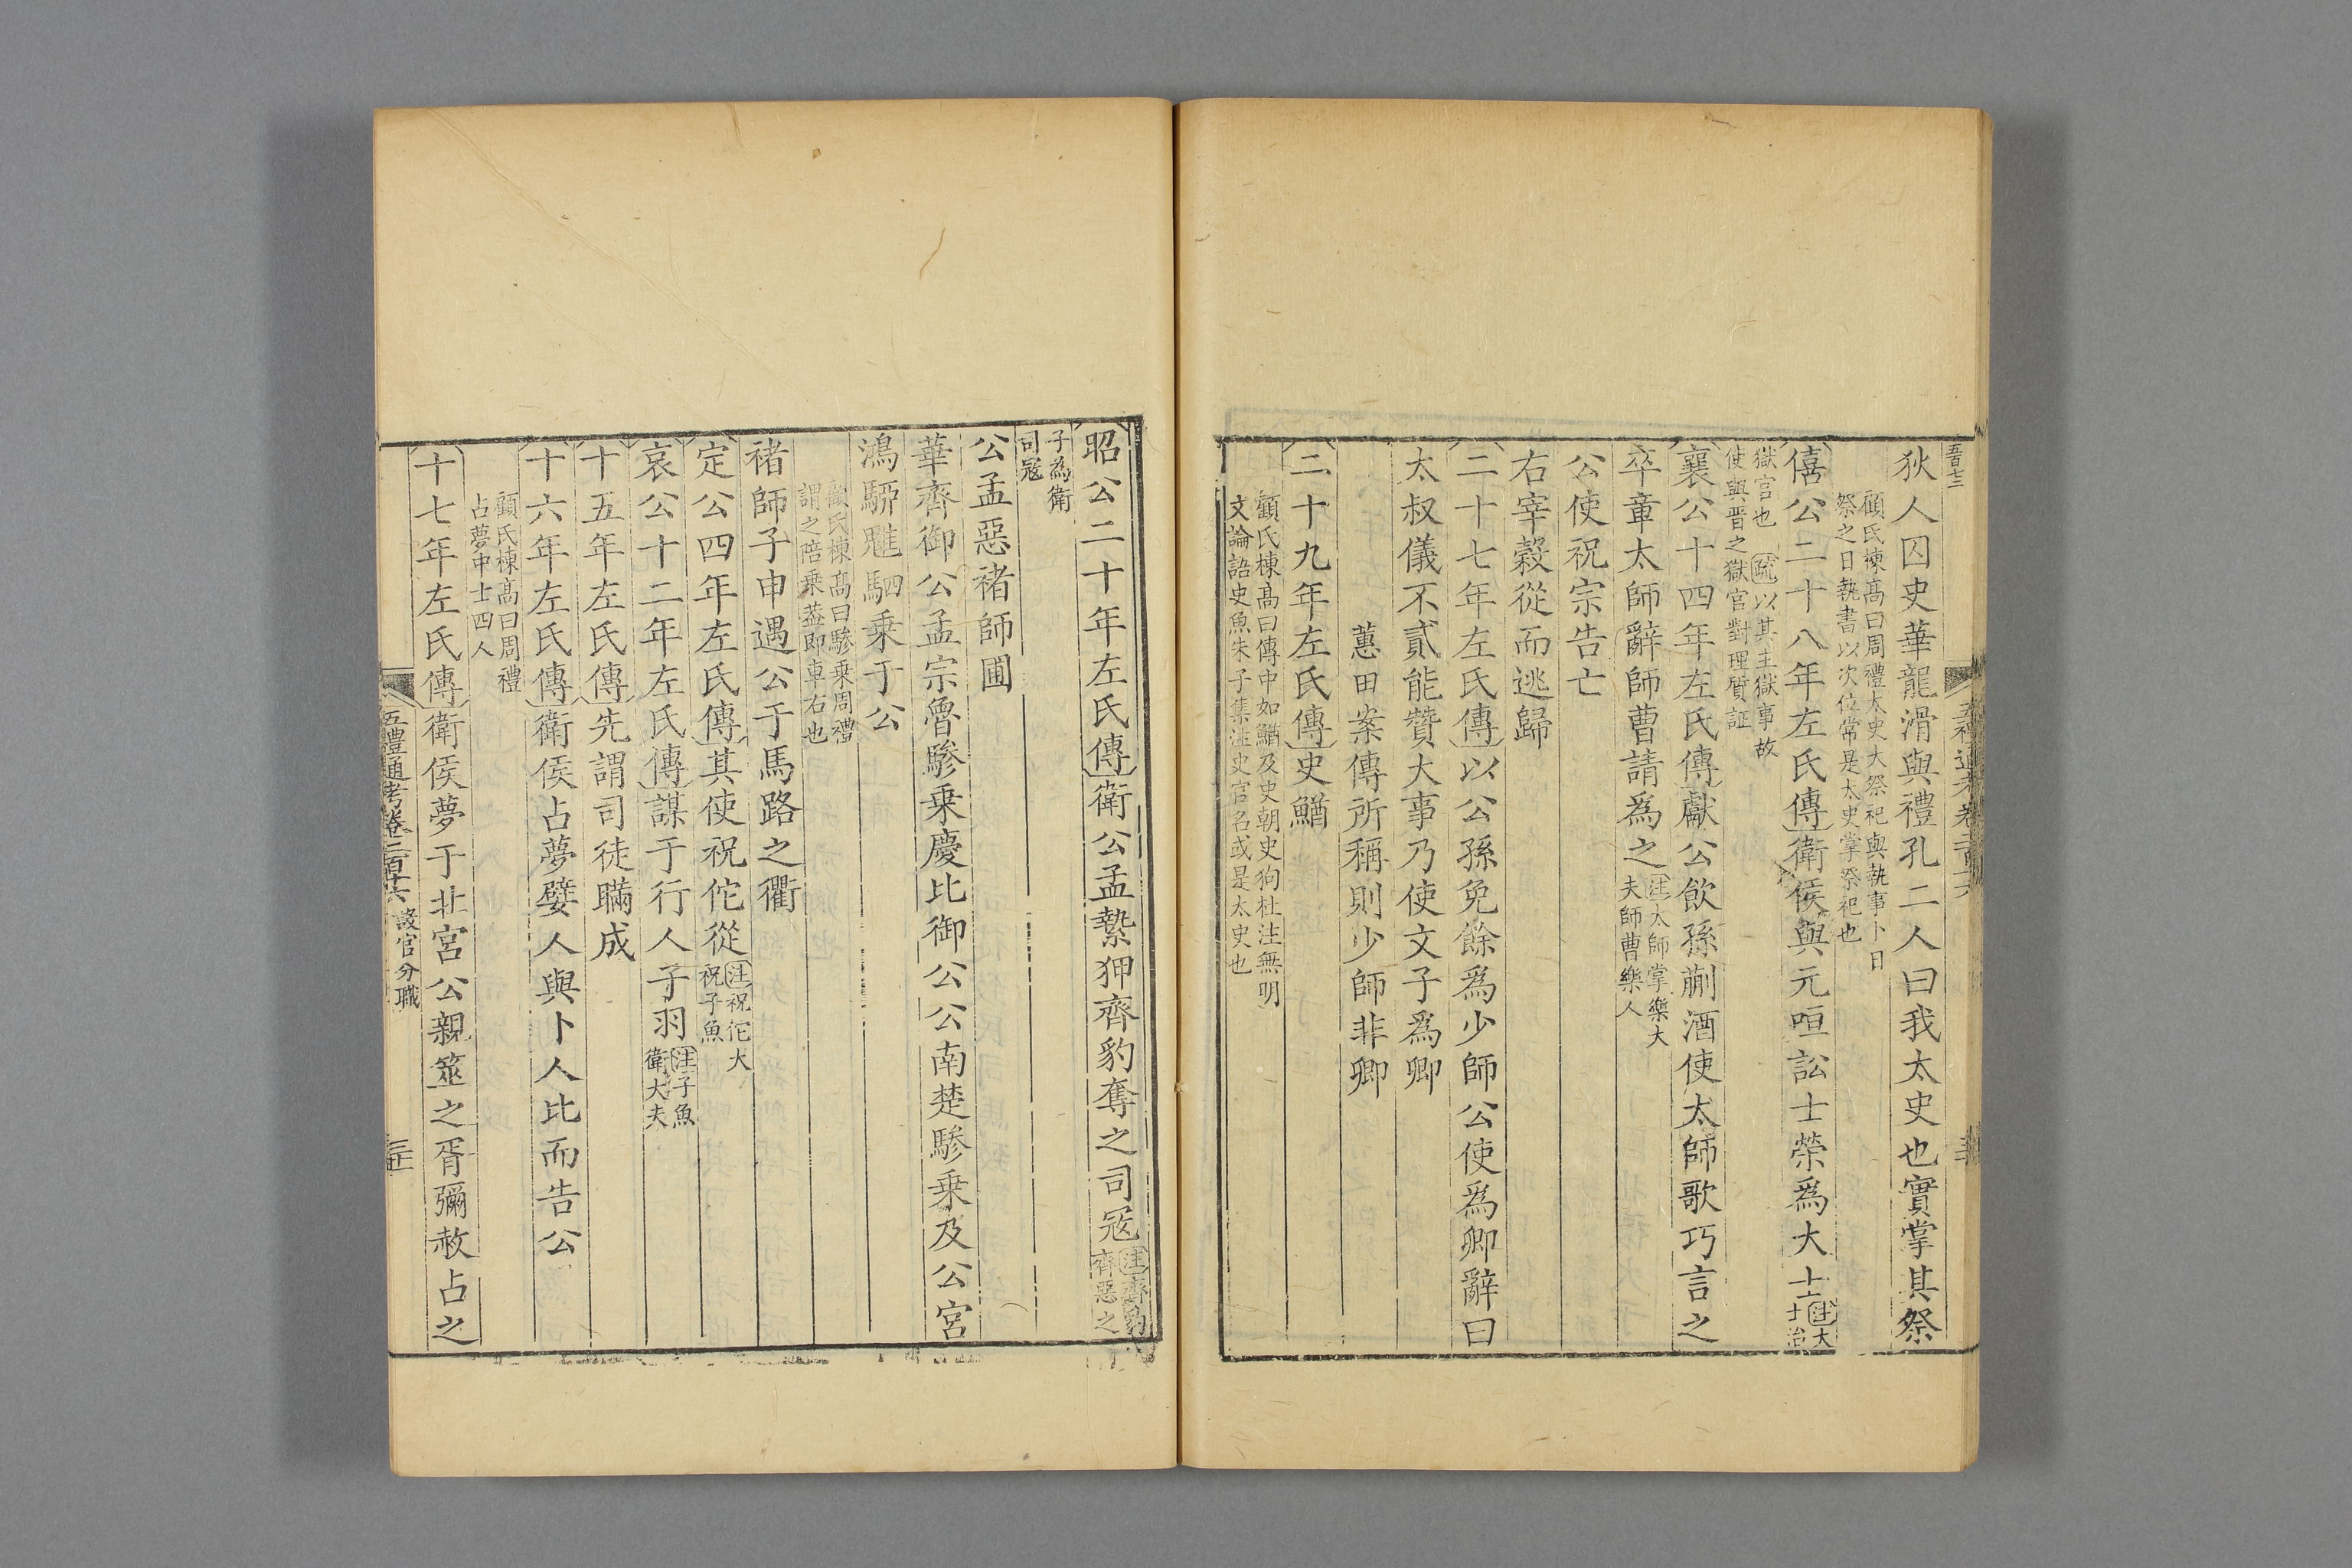 狄人囚史華龍滑與禮孔二人曰我太史也實掌其祭
顧氏棟髙曰周禮太史大祭祀與執事卜日
祭之日執書以次位常是太史掌祭祀也
僖公二十八年左氏傳衛侯與元咺訟士榮爲大士注大
士治
獄官也疏以其主獄事故
使與晋之獄官對理質証
襄公十四年左氏傳獻公飲孫蒯酒使太師歌巧言之
卒章太師辭師曹請爲之注太師掌樂大
夫師曹樂人
公使祝宗告亡
右宰穀從而逃歸
二十七年左氏傳以公孫免餘爲少師公使爲卿辭曰
太叔儀不貳能贊大事乃使文子爲卿
蕙田案傳所稱則少師非卿
二十九年左氏傳史鰌
顧氏棟髙曰傳中如鰌及史朝史狗杜注無明
文論語史魚朱子集注史官名或是太史也
昭公二十年左氏傳衛公孟縶狎齊豹奪之司寇注齊豹
齊惡之
子為衛
司寇
公孟惡褚師圃
華齊御公孟宗魯驂乗慶比御公公南楚驂乗及公宮
鴻駵魋駟乗于公
顧氏棟髙曰驂乗周禮
謂之陪乗葢即車右也
褚師子申遇公于馬路之衢
定公四年左氏傳其使祝佗從注祝佗大
祝子魚
哀公十二年左氏傳謀于行人子羽注子魚
衛大夫
十五年左氏傳先謂司徒瞞成
十六年左氏傳衛侯占夢嬖人與卜人比而告公
顧氏棟髙曰周禮
占夢中士四人
十七年左氏傳衛侯夢于北宮公親筮之胥彌赦占之
五禮通考卷二百十六 設官分職